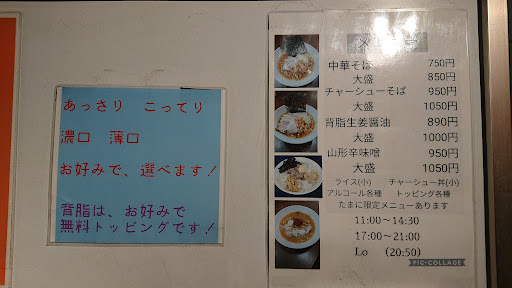 あっさり こってり
濃口 薄口
お好みで、選べます！
背脂は、お好みで
無料トッピングです！
メニュー
中華そば 750円
大盛 850円
チャーシューそば 950円
大盛 1050円
背脂生姜醤油 890円
大盛 1000円
山形辛味噌 950円
大盛 1050円
ライス(小) チャーシュー丼(小)
アルコール各種 トッピング各種
たまに限定メニューあります
11:00〜14:30
17:00〜21:00
Lo (20:50)
PIC·COLLAGE